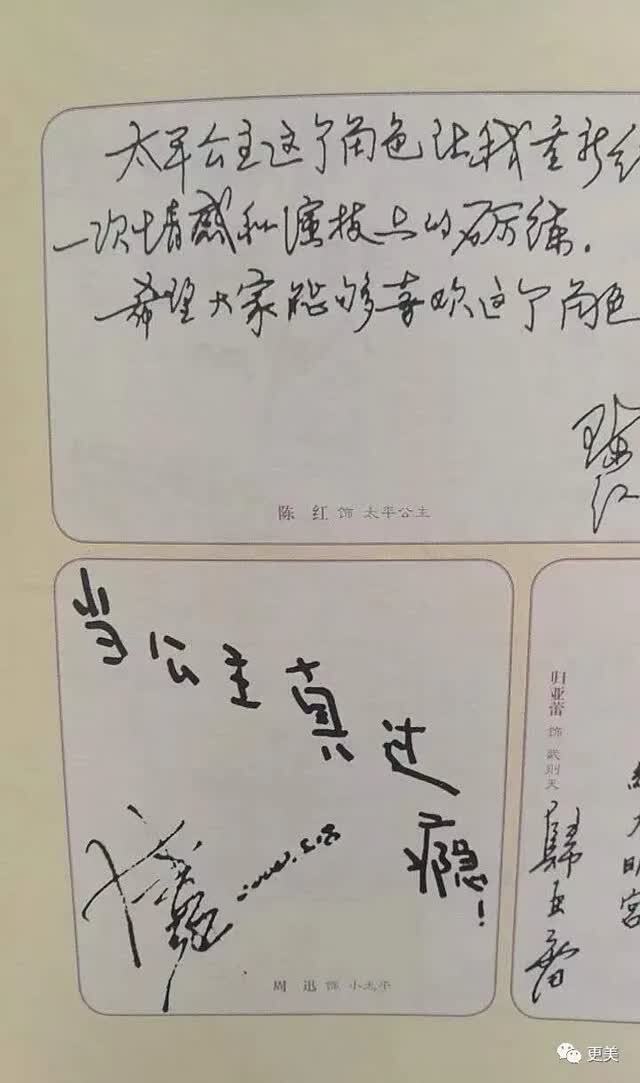 太平公主这个角色让我重新经
一次情感和演技上的砺练.
希望大家能够喜欢这个角色
陈红
陈 红 饰 太平公主
当公主真过瘾!
周 迅 饰 小太平
归亚蕾 饰 武则天
归亚蕾
大明宫
更美